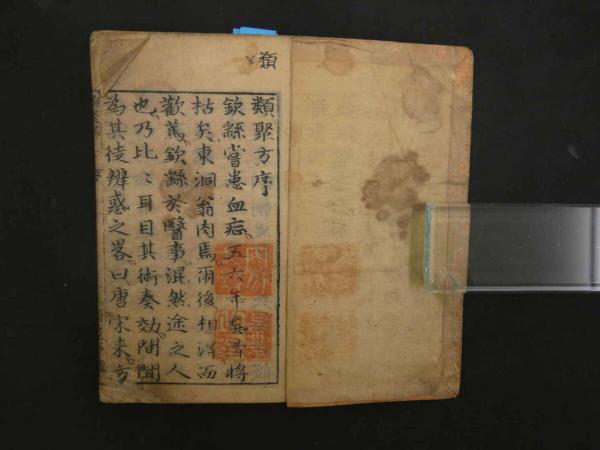 類
類聚方序
欽繇嘗患血疝五六年矣骨將
拈矣東洞翁肉焉爾後相得而
歡篤欽繇於醫事混然途之人
也乃比〻耳目其術奏効間聞
為其徒辨惑之畧曰唐宋来方